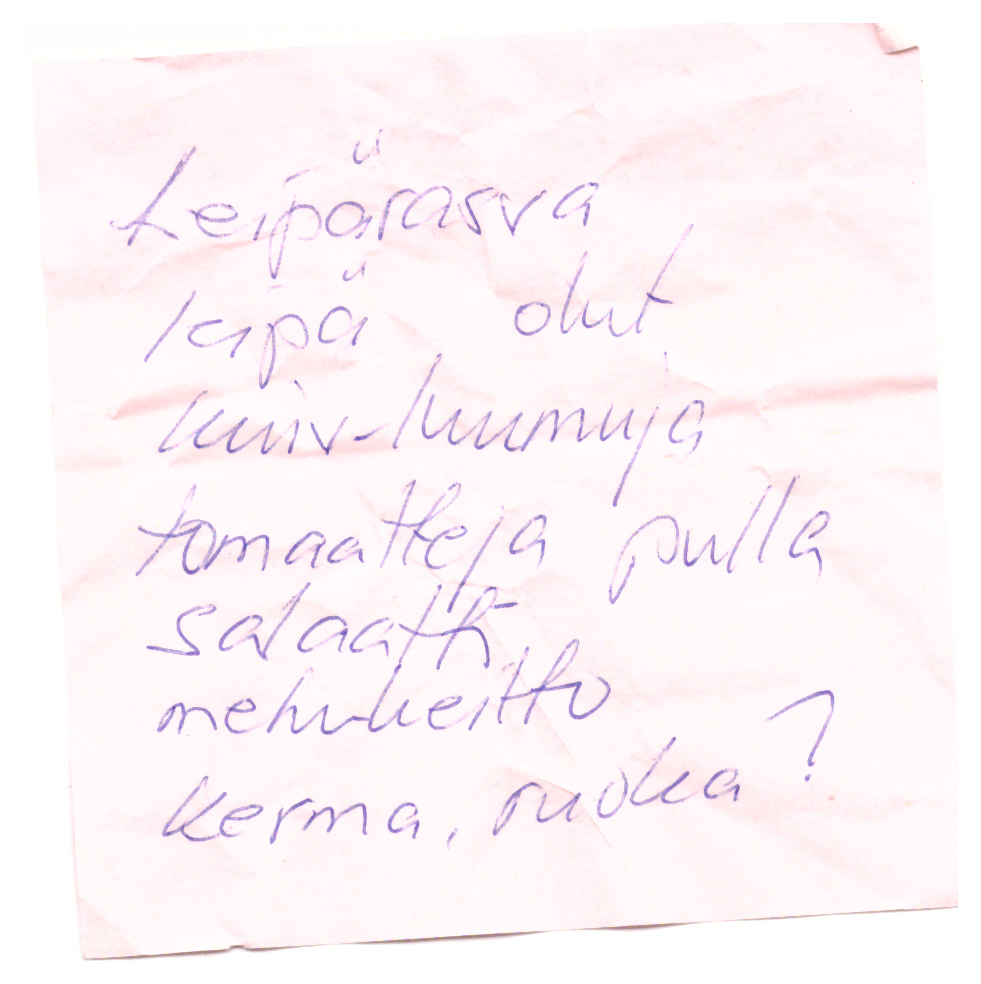 Leipärasva
leipä olut
kuiv-luumuja
tomaatteja pulla
salaatti
mehukeitto
kerma, ruoka ?